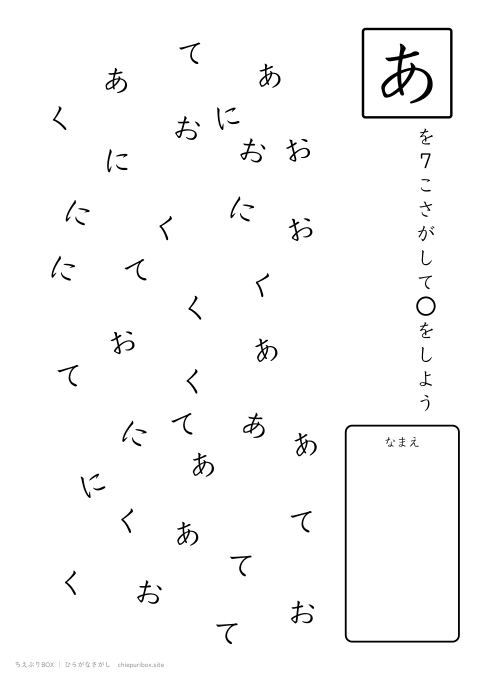 あ
を7こさがして○をしよう
なまえ
て
あ
あ
く
に
お
お
お
に
に
に
く
お
に
て
く
く
お
あ
て
く
に
て
あ
あ
あ
に
く
あ
て
て
く
お
お
て
ちえぷりBOX | ひらがなさがし chiepuribox.site